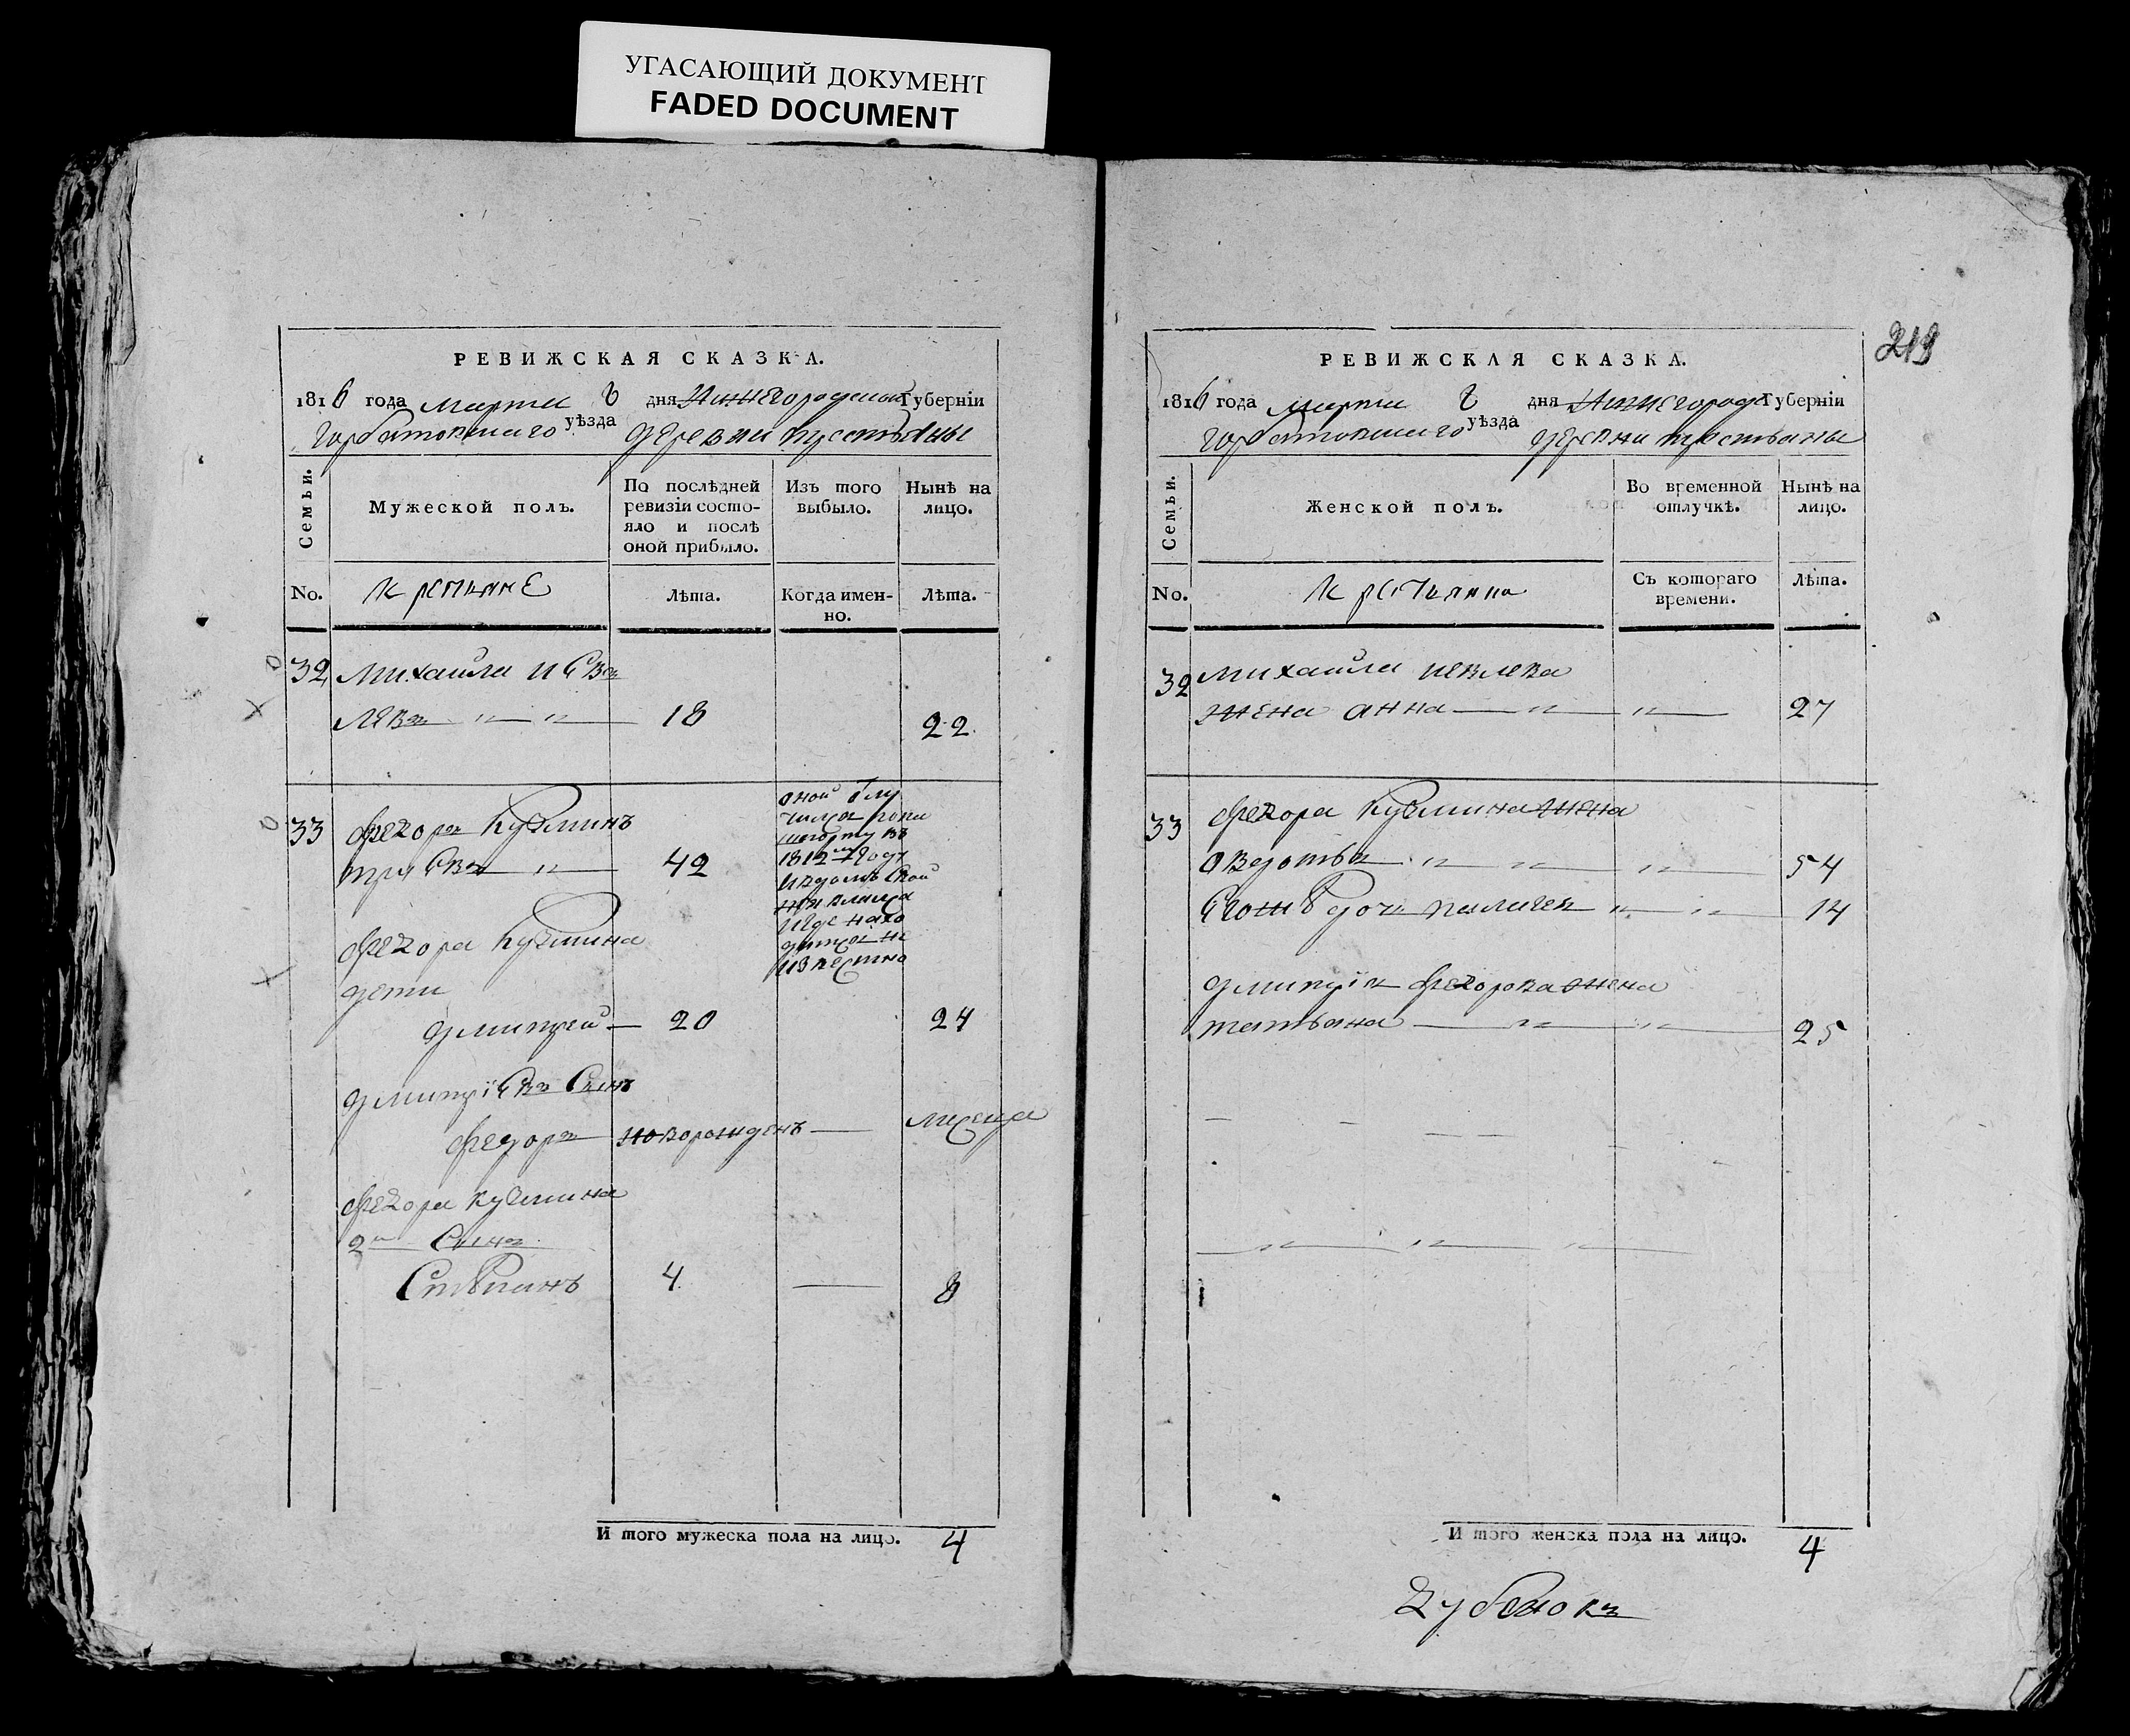 УГАСАЮЩИЙ ДОКУМЕНТ
FADED DOCUMENT
РЕВИЖСКАЯ СКАЗКА.
1816 года марта 8 дня Нижегородской Губернiи
Горбатовскаго уѣзда деревни
Семьи.
Мужеской полъ.
По послѣдней ревизiи состо-
яло и послѣ
оной прибыло.
Изъ того
выбыло.
Нынѣ на
лицо.
No.
Лѣта.
Когда имен-
но.
Лѣта.
32 Михайла Иев
левъ 18 22
33 Федоръ Кузминъ
42
1812 году
Федора Кузмина
дети
Дмитрей 20 24
Дмитрiевъ Сынъ
Федоръ новорожденъ месеца
Федора Кузмина
2й Сынъ
Стѣпанъ 4 8
И того мужеска пола на лицо. 4
219
РЕВИЖСКАЯ СКАЗКА.
1816 года марта 8 дня Нижегород Губернiи
Горбатовскаго уѣзда деревни
Семьи.
Женской полъ.
Во временной
отлучкѣ.
Нынѣ на
лицо.
No.
Съ котораго
времени.
Лѣта.
32 Михайла Иевлева
жена анна 27
33 Федора Кузмина жена
овдотья 54
Егожѣ дочь 14
Дмитрiя Федорова жена
татьяна 25
И того женска пола на лицо. 4